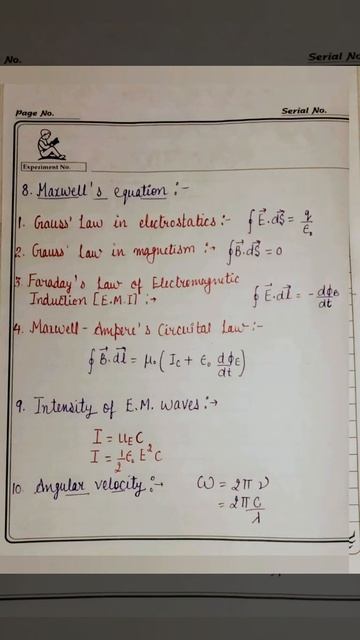 No.
Serial No.
Page No.
Serial No.
Experiment No.
8. Maxwell's equation :-
1. Gauss' Law in electrostatics :- ∮E⃗.dS⃗ = q/ε₀
2. Gauss' Law in magnetism :→ ∮B⃗.dS⃗ = 0
3. Faraday's Law of Electromagnetic
Induction [E.M.I] :→ ∮E⃗.dl⃗ = -dϕB/dt
4. Maxwell-Ampere's Circuital Law :-
∮B⃗.dl⃗ = μ₀ (Ic + ε₀ dϕE/dt)
9. Intensity of E.M. waves :→
I = uE C
I = 1/2 ε₀ E² C
10. Angular velocity :→ ω = 2π ν
= 2π C/λ